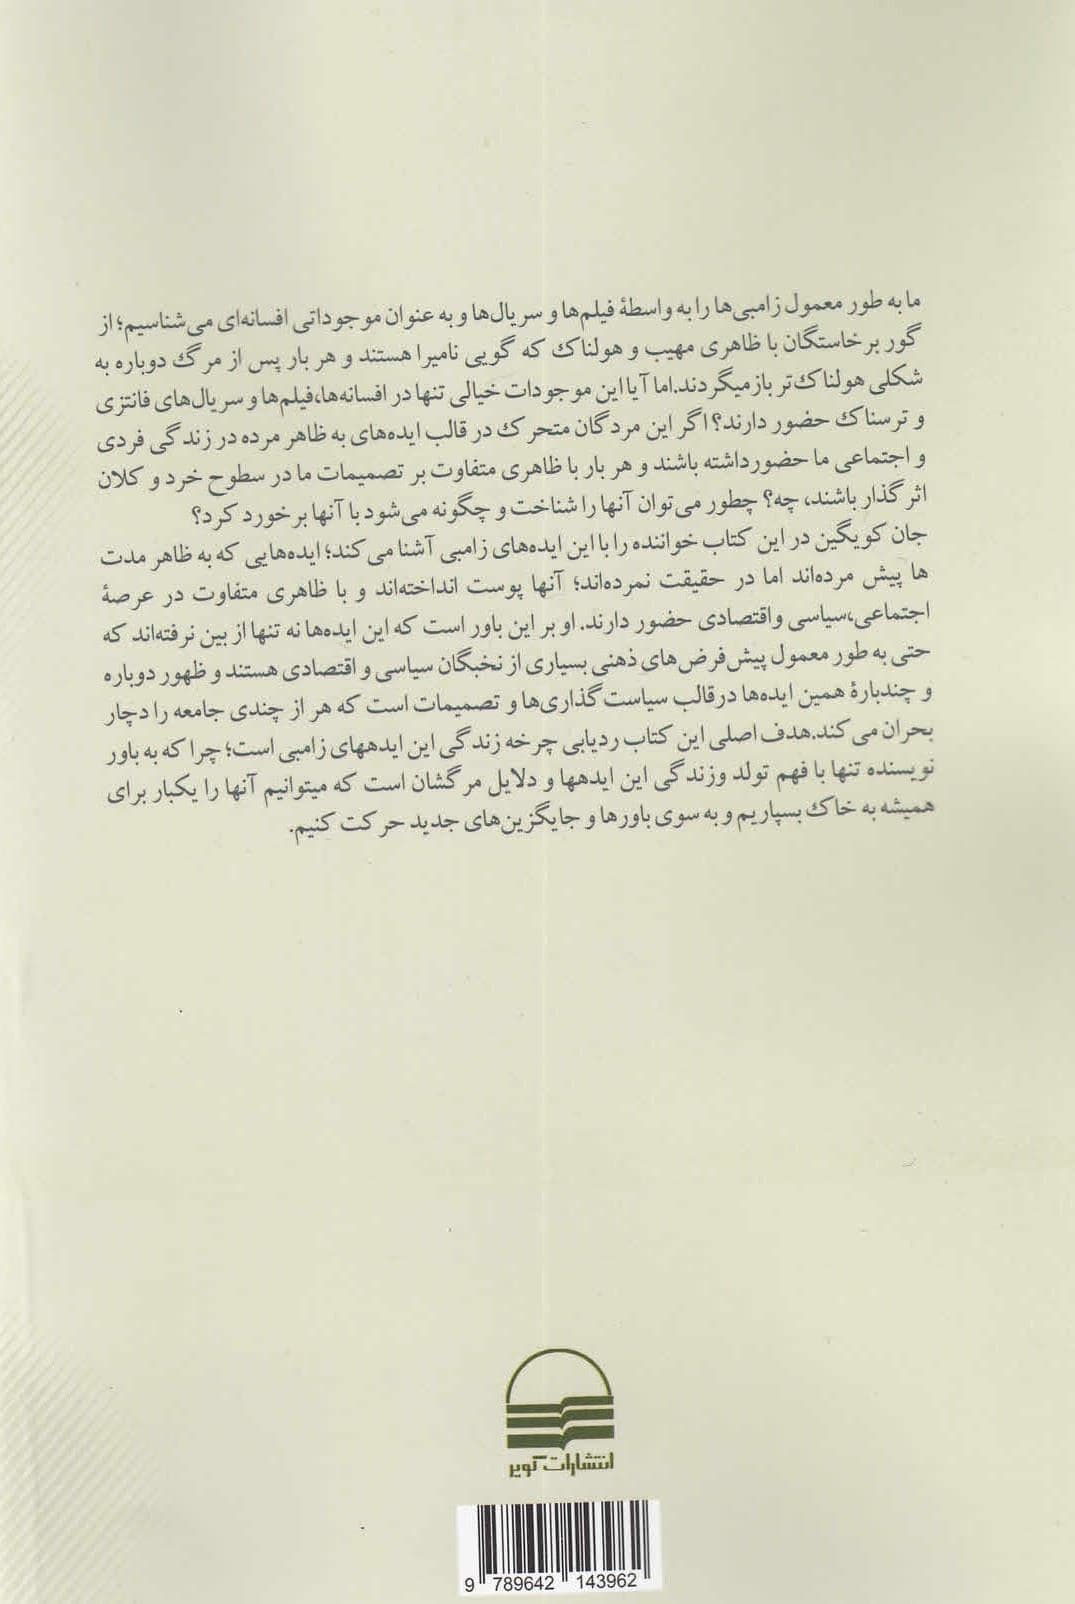 ما به طور معمول زامبی‌ها را به واسطهٔ فیلم‌ها و سریال‌ها و به عنوان موجوداتی افسانه‌ای می‌شناسیم؛ از
گور برخاستگان با ظاهری مهیب و هولناک که گویی نامیرا هستند و هر بار پس از مرگ دوباره به
شکلی هولناک‌تر بازمیگردند.اما آیا این موجودات خیالی تنها در افسانه‌ها،فیلم‌ها و سریال‌های فانتزی
و ترسناک حضور دارند؟ اگر این مردگان متحرک در قالب ایده‌های به ظاهر مرده در زندگی فردی
و اجتماعی ما حضورداشته باشند و هر بار با ظاهری متفاوت بر تصمیمات ما در سطوح خرد و کلان
اثرگذار باشند، چه؟ چطور می‌توان آنها را شناخت و چگونه می‌شود با آنها برخورد کرد؟
جان کوییگین در این کتاب خواننده را با این ایده‌های زامبی آشنا می‌کند؛ ایده‌هایی که به ظاهر مدت
ها پیش مرده‌اند اما در حقیقت نمرده‌اند؛ آنها پوست انداخته‌اند و با ظاهری متفاوت در عرصهٔ
اجتماعی،سیاسی واقتصادی حضور دارند. او بر این باور است که این ایده‌ها نه تنها از بین نرفته‌اند که
حتی به طور معمول پیش‌فرض‌های ذهنی بسیاری از نخبگان سیاسی و اقتصادی هستند و ظهور دوباره
و چندبارهٔ همین ایده‌ها درقالب سیاست‌گذاری‌ها و تصمیمات است که هر از چندی جامعه را دچار
بحران می‌کند.هدف اصلی این کتاب ردیابی چرخه زندگی این ایدههای زامبی است؛ چرا که به باور
نویسنده تنها با فهم تولد وزندگی این ایدهها و دلایل مرگشان است که میتوانیم آنها را یکبار برای
همیشه به خاک بسپاریم و به سوی باورها و جایگزین‌های جدید حرکت کنیم.
انتشارات کویر
9 789642 143962